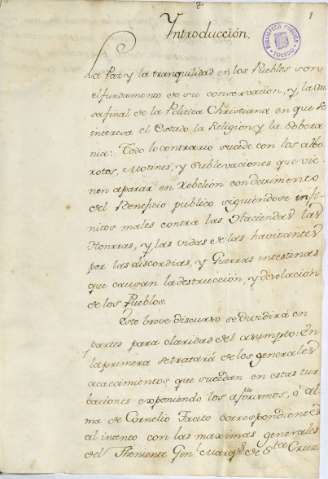 Introducción.
1
La Paz y la tranquilidad en los Pueblos son
el fundamento de su conservacion, y la cau
sa final de la Politica Christiana en que se
interesa el Estado la Religion y la Sobera
nia: Todo lo contrario sucede con los albo
rotos, Motines, y Sublevaciones que vie
nen aparar en Rebelion con detrimento
del Beneficio publico siguiendose infi
nitos males contra las Haciendas las
Honrias, y las vidas de los havitantes
por las discordias, y Guerras intestinas
que causan la destruccion, y desolacion
de los Pueblos.
Este breve discurso se dividirá en
partes para claridad del asumpto. En
la primera se tratará de los generales
acaecimientos que suceden en estas tur
baciones exponiendo los
ma de Cornelio Tacito correspondientes
al intento con las maximas generales
del Theniente Gen.l Marq.s de S.ta Cruz